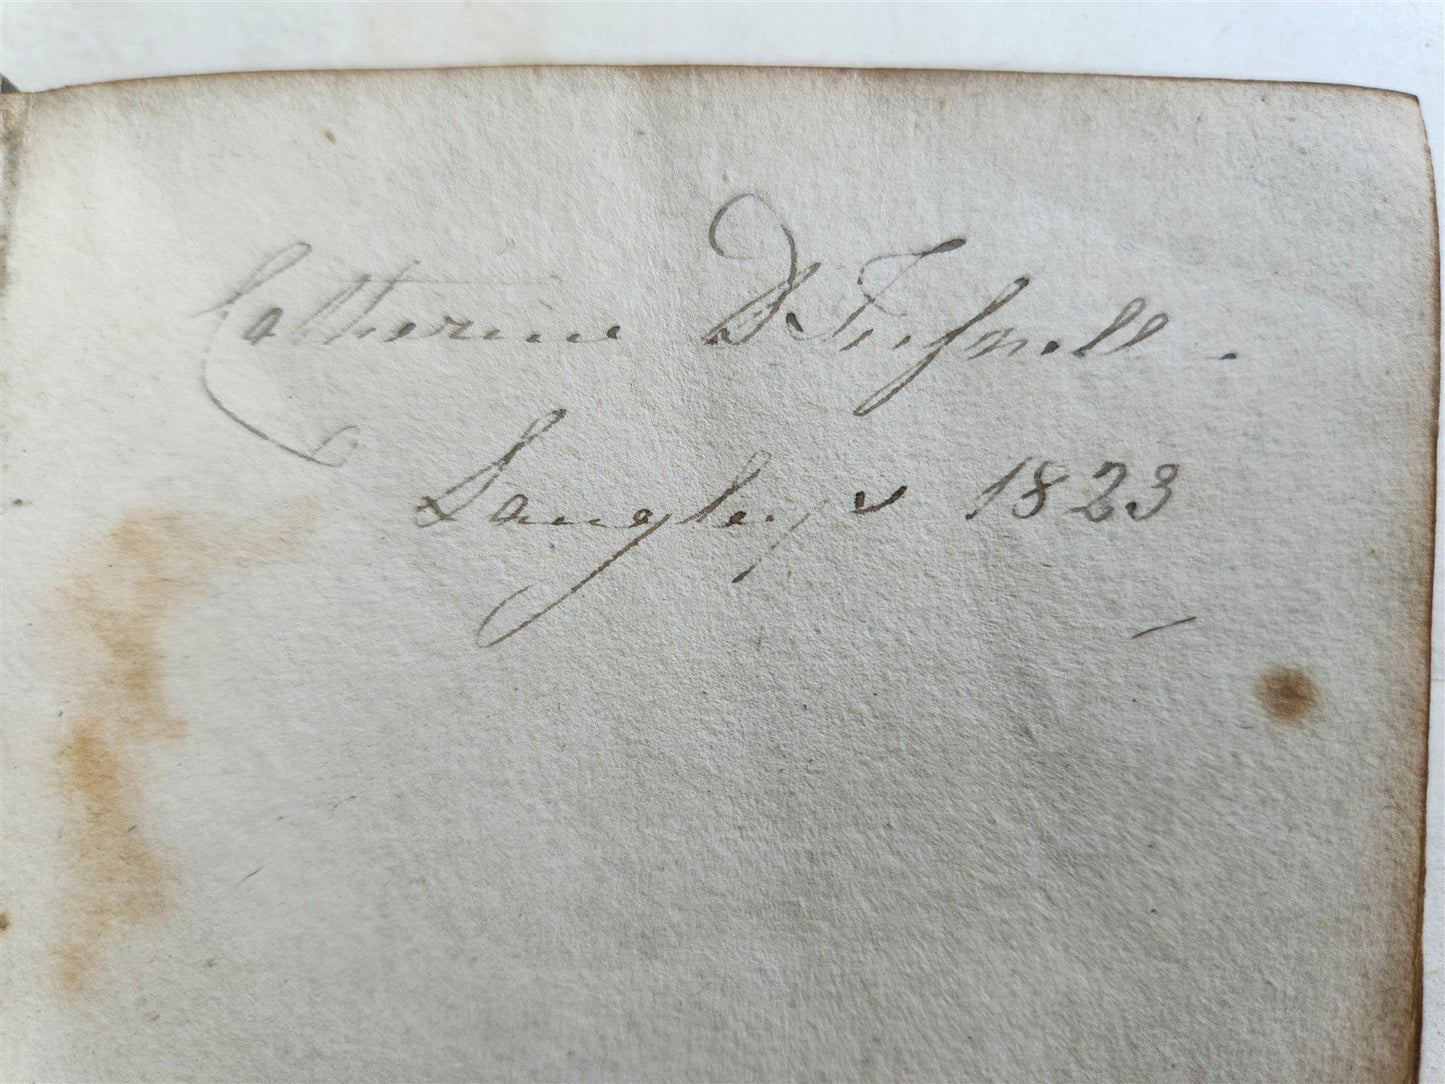 Catherine D Tufnell -
Langleys 1823